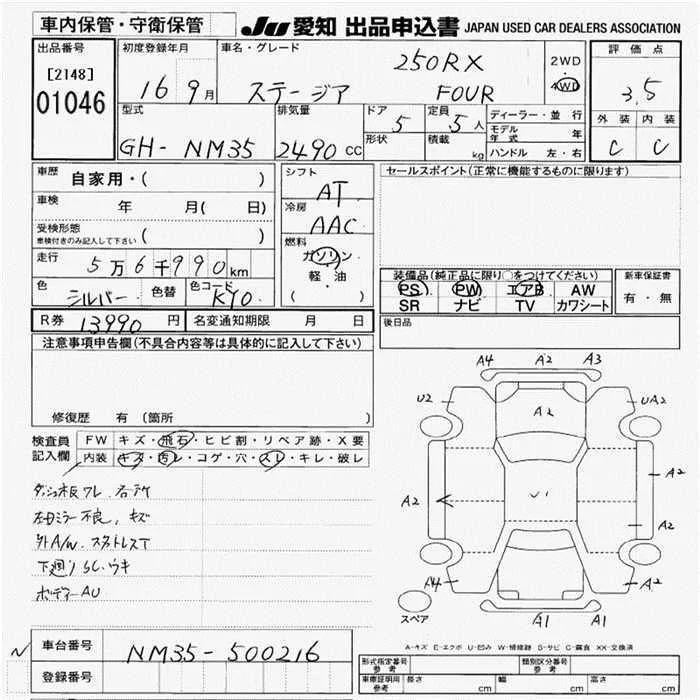 車内保管・守衛保管
JU 愛知 出品申込書 JAPAN USED CAR DEALERS ASSOCIATION
出品番号
[2148]
01046
初度登録年月
16 9月
車名・グレード
ステージア
250RX
FOUR
2WD
4WD
評価点
3.5
外装 内装
C C
型式
GH-NM35
排気量
2490 CC
ドア
5
形状
定員
5人
積載 kg
ディーラー・並行
モデル年式 年
ハンドル 左・右
車歴 自家用・( )
車検 年 月( 日)
受検形態
車検付きのみ記入して下さい ( )
走行 5万6千990km
色 シルバー 色替 色コード KY0
シフト
AT
冷房
AAC
燃料
ガソリン
軽・油
( )
セールスポイント(正常に機能するものに限ります)
装備品(純正品に限り○をつけてください)
PS PW エアB AW
SR ナビ TV カワシート
新車保証書
有・無
後日品
R券 13990円 名変通知期限 月 日
注意事項申告欄(不具合内容等は具体的に記入して下さい)
修復歴 有 (箇所 )
検査員
記入欄
FW キズ・飛石・ヒビ割・リペア跡・X要
内装 キズ・汚レ・コゲ・穴・スレ・キレ・破レ
左ドアミラー不良、キズ
外A/W.スタットレスT
下廻りSC.ウキ
ボディーAU
A4 A2 A3
U2 UA2
A2
A2 U1 A2
A2
A4 A2
A1 A1
スペア
A-キズ E-エクボ U-凹み W-補修跡 S-サビ C-腐食 XX-交換済
車台番号 NM35-500216
登録番号
形式指定番号 参考
類別区分番号 参考
車庫証明用 参考 長さ cm 幅 cm 高さ cm